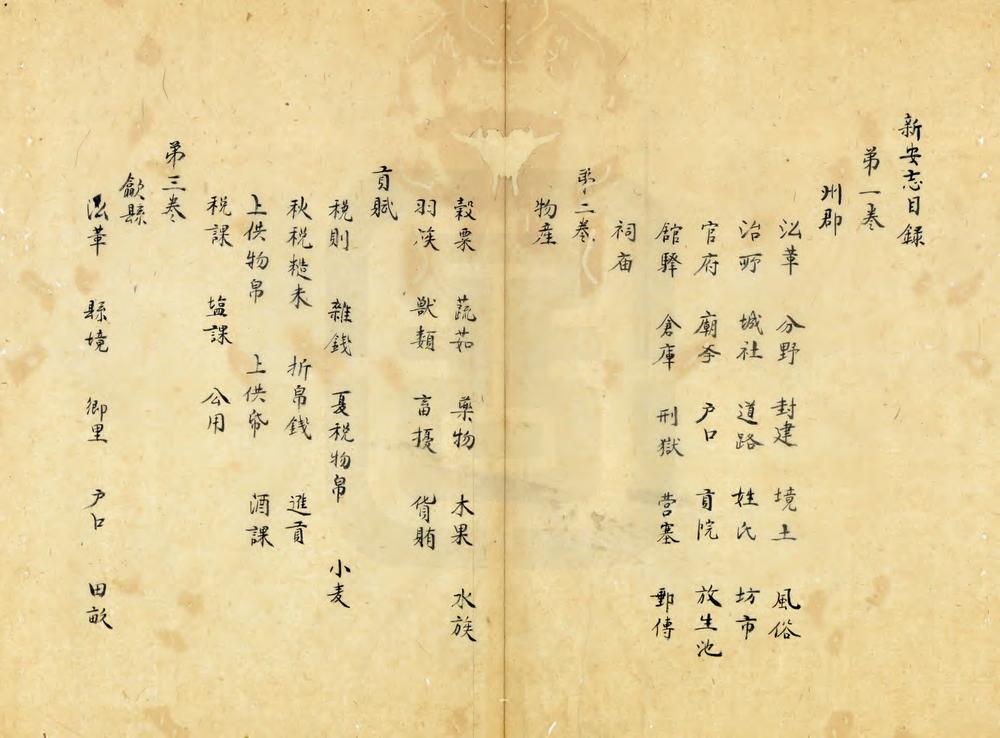 新安志目録
第一巻
州郡
㳂革 分野 封建 境土 風俗
治所 城社 道路 姓氏 坊市
官府 廟学 戸口 貢院 放生池
館驛 倉庫 刑獄 营寨 郵傳
祠庙
第二巻
物産
穀粟 蔬茹 藥物 木果 水族
羽族 獣類 畜擾 貨賄
貢賦
税則 雜錢 夏税物帛 小麦
秋税糙米 折帛錢 進貢
上供物帛 上供帋 酒課
税課 塩課 公用
第三巻
歙縣
㳂革 縣境 鄉里 戸口 田畝